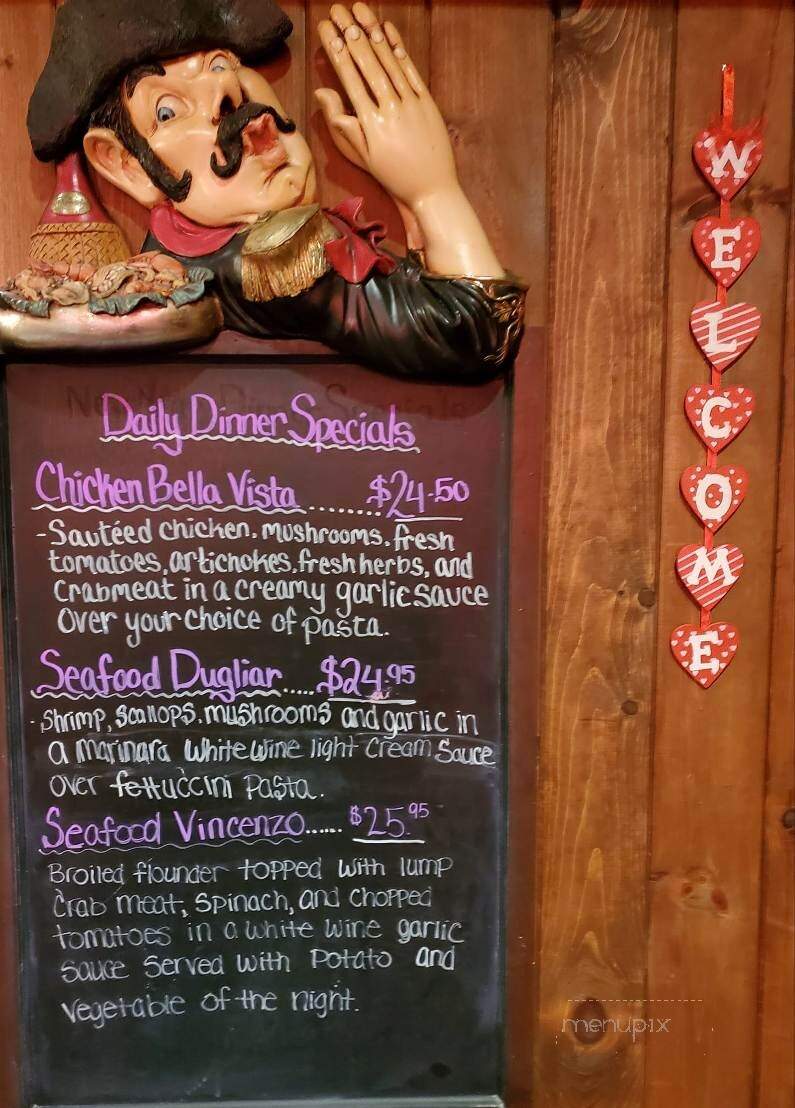 Daily Dinner Specials
Chicken Bella Vista ........ $24.50
- Sautéed chicken, mushrooms, fresh
tomatoes, artichokes, fresh herbs, and
crabmeat in a creamy garlic sauce
over your choice of pasta.
Seafood Dugliar ..... $24.95
- Shrimp, scallops, mushrooms and garlic in
a marinara white wine light cream sauce
over fettuccini pasta.
Seafood Vincenzo...... $25.95
Broiled flounder topped with lump
crab meat, spinach, and chopped
tomatoes in a white wine garlic
sauce served with potato and
vegetable of the night.
WELCOME
menupix